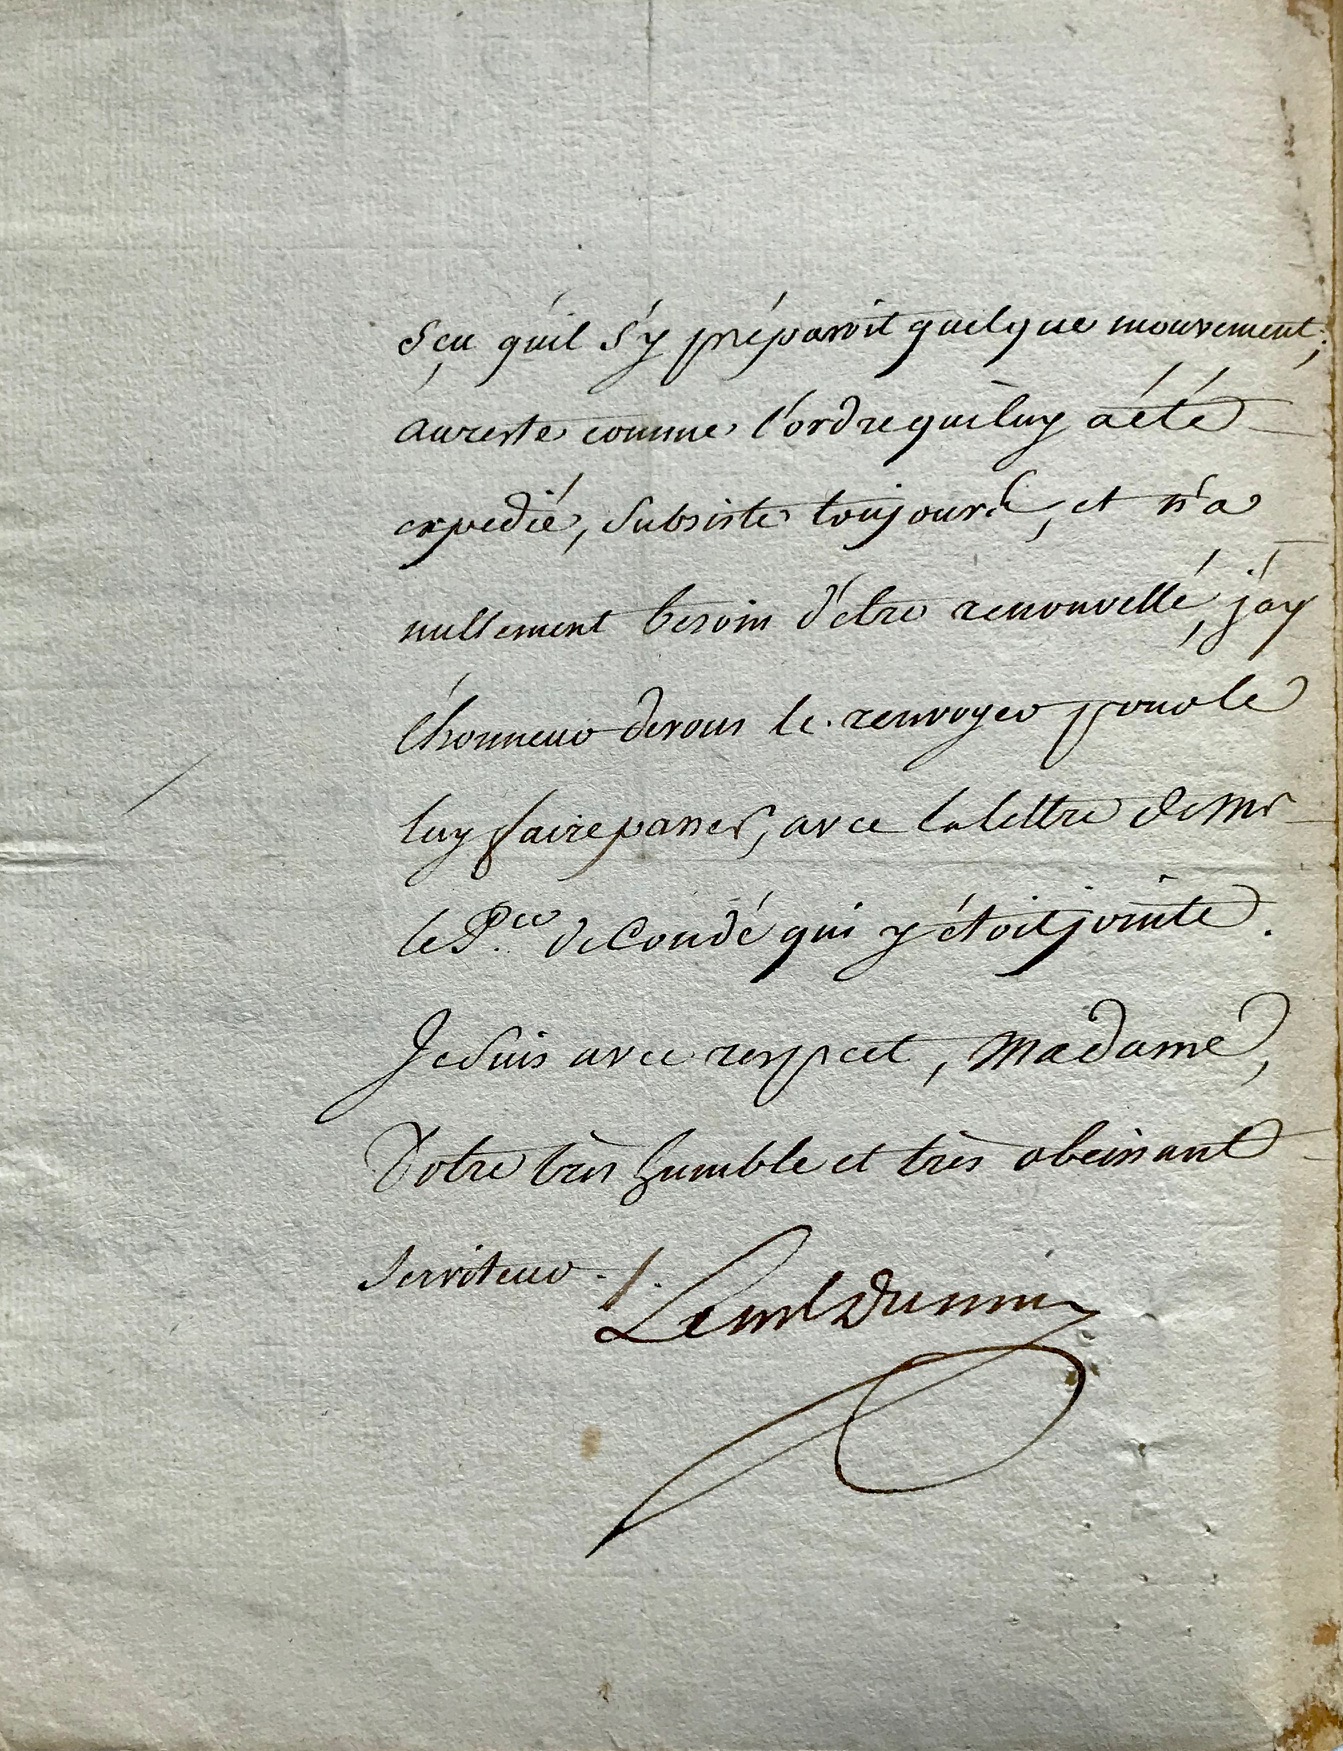 sçu qu'il s'y préparoit quelque mouvement;
aureste comme l'ordre qui luy a été
expedié, subsiste toujours, et n'a
nullement besoin d'etre renouvellé, j'ay
l'honneur de vous le renvoyer pour le
luy faire passer, avec la lettre de Mr
le P.ce de Condé qui y étoit jointe.
Je suis avec respect, Madame,
Votre très humble et très obeissant
serviteur